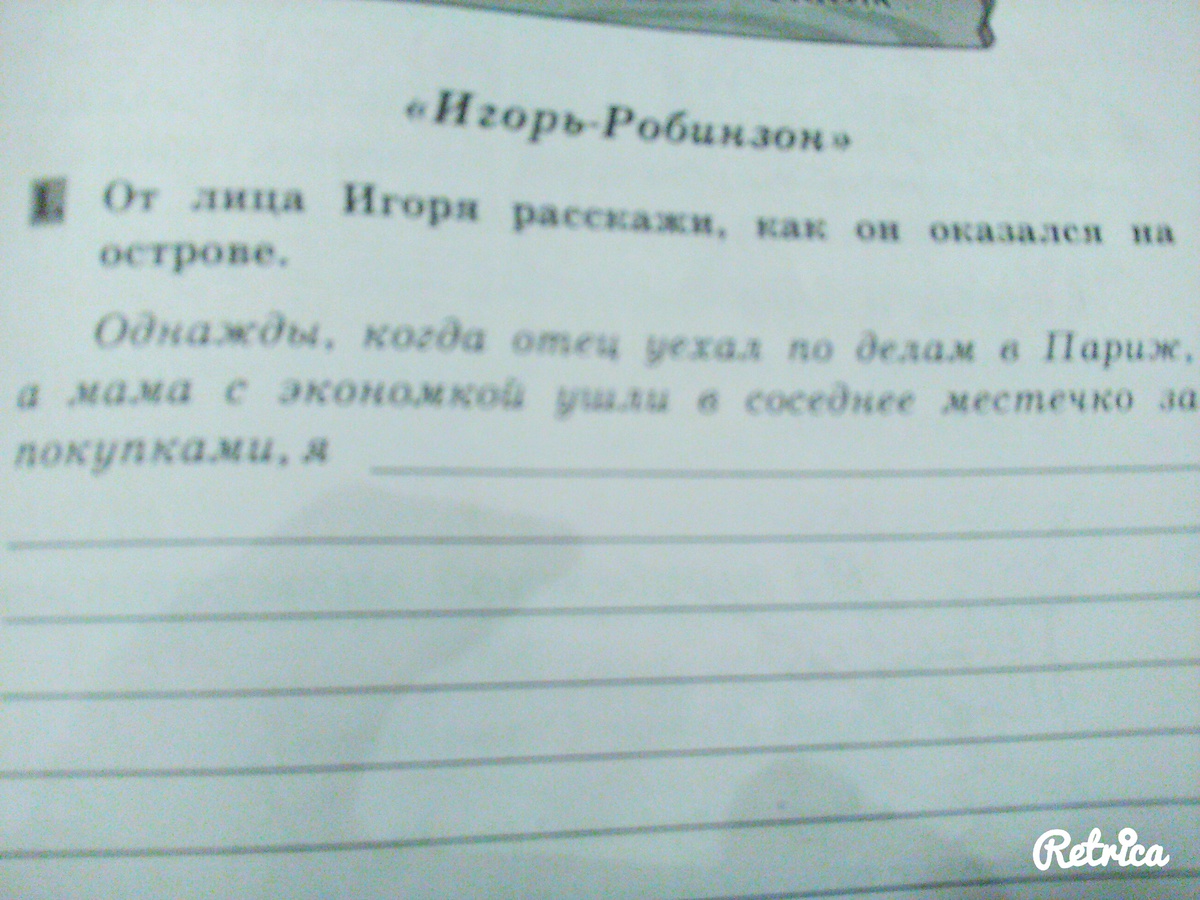 «Игорь-Робинзон»
1. От лица Игоря расскажи, как он оказался на
острове.
Однажды, когда отец уехал по делам в Париж,
а мама с экономкой ушли в соседнее местечко за
покупками, я
Retrica